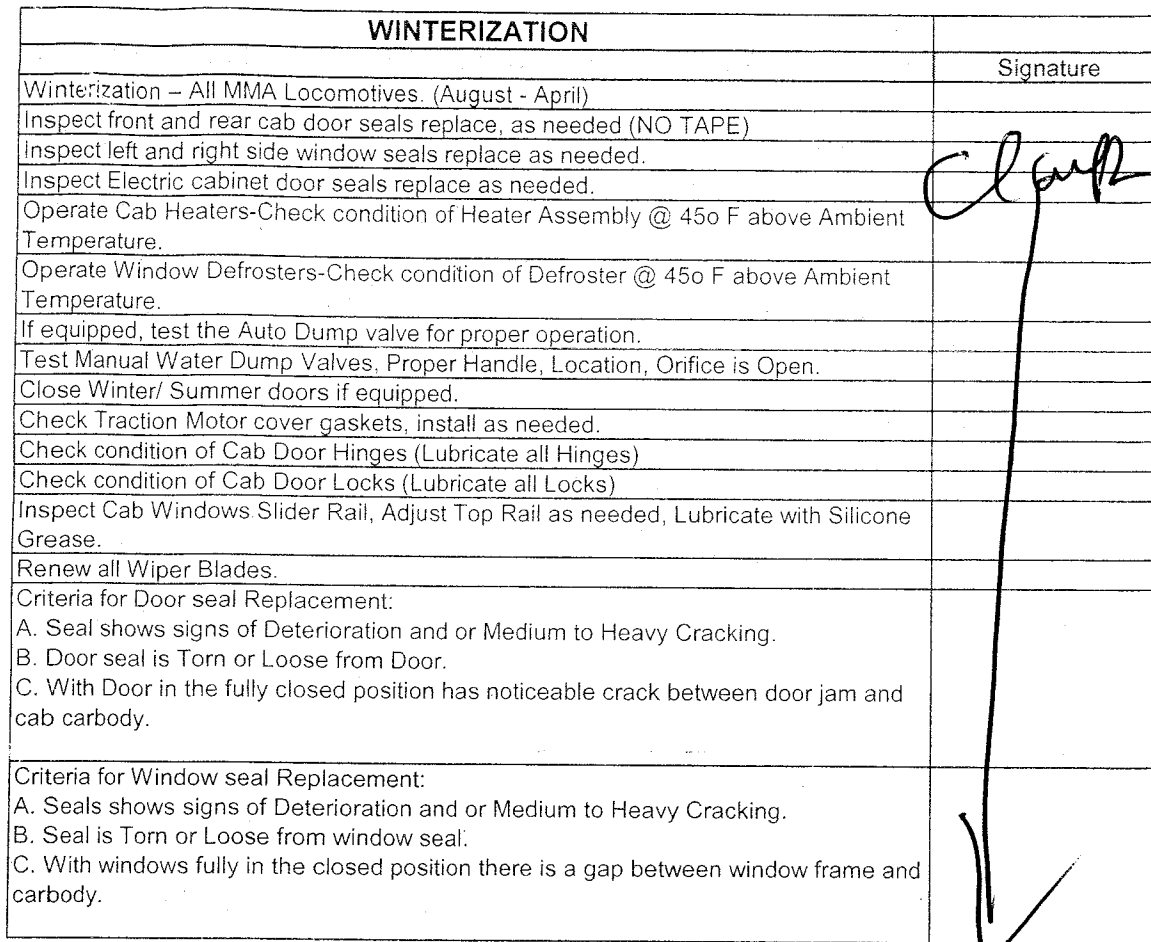 WINTERIZATION
Signature
Winterization – All MMA Locomotives. (August - April)
Inspect front and rear cab door seals replace, as needed (NO TAPE)
Inspect left and right side window seals replace as needed.
Inspect Electric cabinet door seals replace as needed.
Operate Cab Heaters-Check condition of Heater Assembly @ 45o F above Ambient
Temperature.
Operate Window Defrosters-Check condition of Defroster @ 45o F above Ambient
Temperature.
If equipped, test the Auto Dump valve for proper operation.
Test Manual Water Dump Valves, Proper Handle, Location, Orifice is Open.
Close Winter/ Summer doors if equipped.
Check Traction Motor cover gaskets, install as needed.
Check condition of Cab Door Hinges (Lubricate all Hinges)
Check condition of Cab Door Locks (Lubricate all Locks)
Inspect Cab Windows Slider Rail, Adjust Top Rail as needed, Lubricate with Silicone
Grease.
Renew all Wiper Blades.
Criteria for Door seal Replacement:
A. Seal shows signs of Deterioration and or Medium to Heavy Cracking.
B. Door seal is Torn or Loose from Door.
C. With Door in the fully closed position has noticeable crack between door jam and
cab carbody.
Criteria for Window seal Replacement:
A. Seals shows signs of Deterioration and or Medium to Heavy Cracking.
B. Seal is Torn or Loose from window seal.
C. With windows fully in the closed position there is a gap between window frame and
carbody.